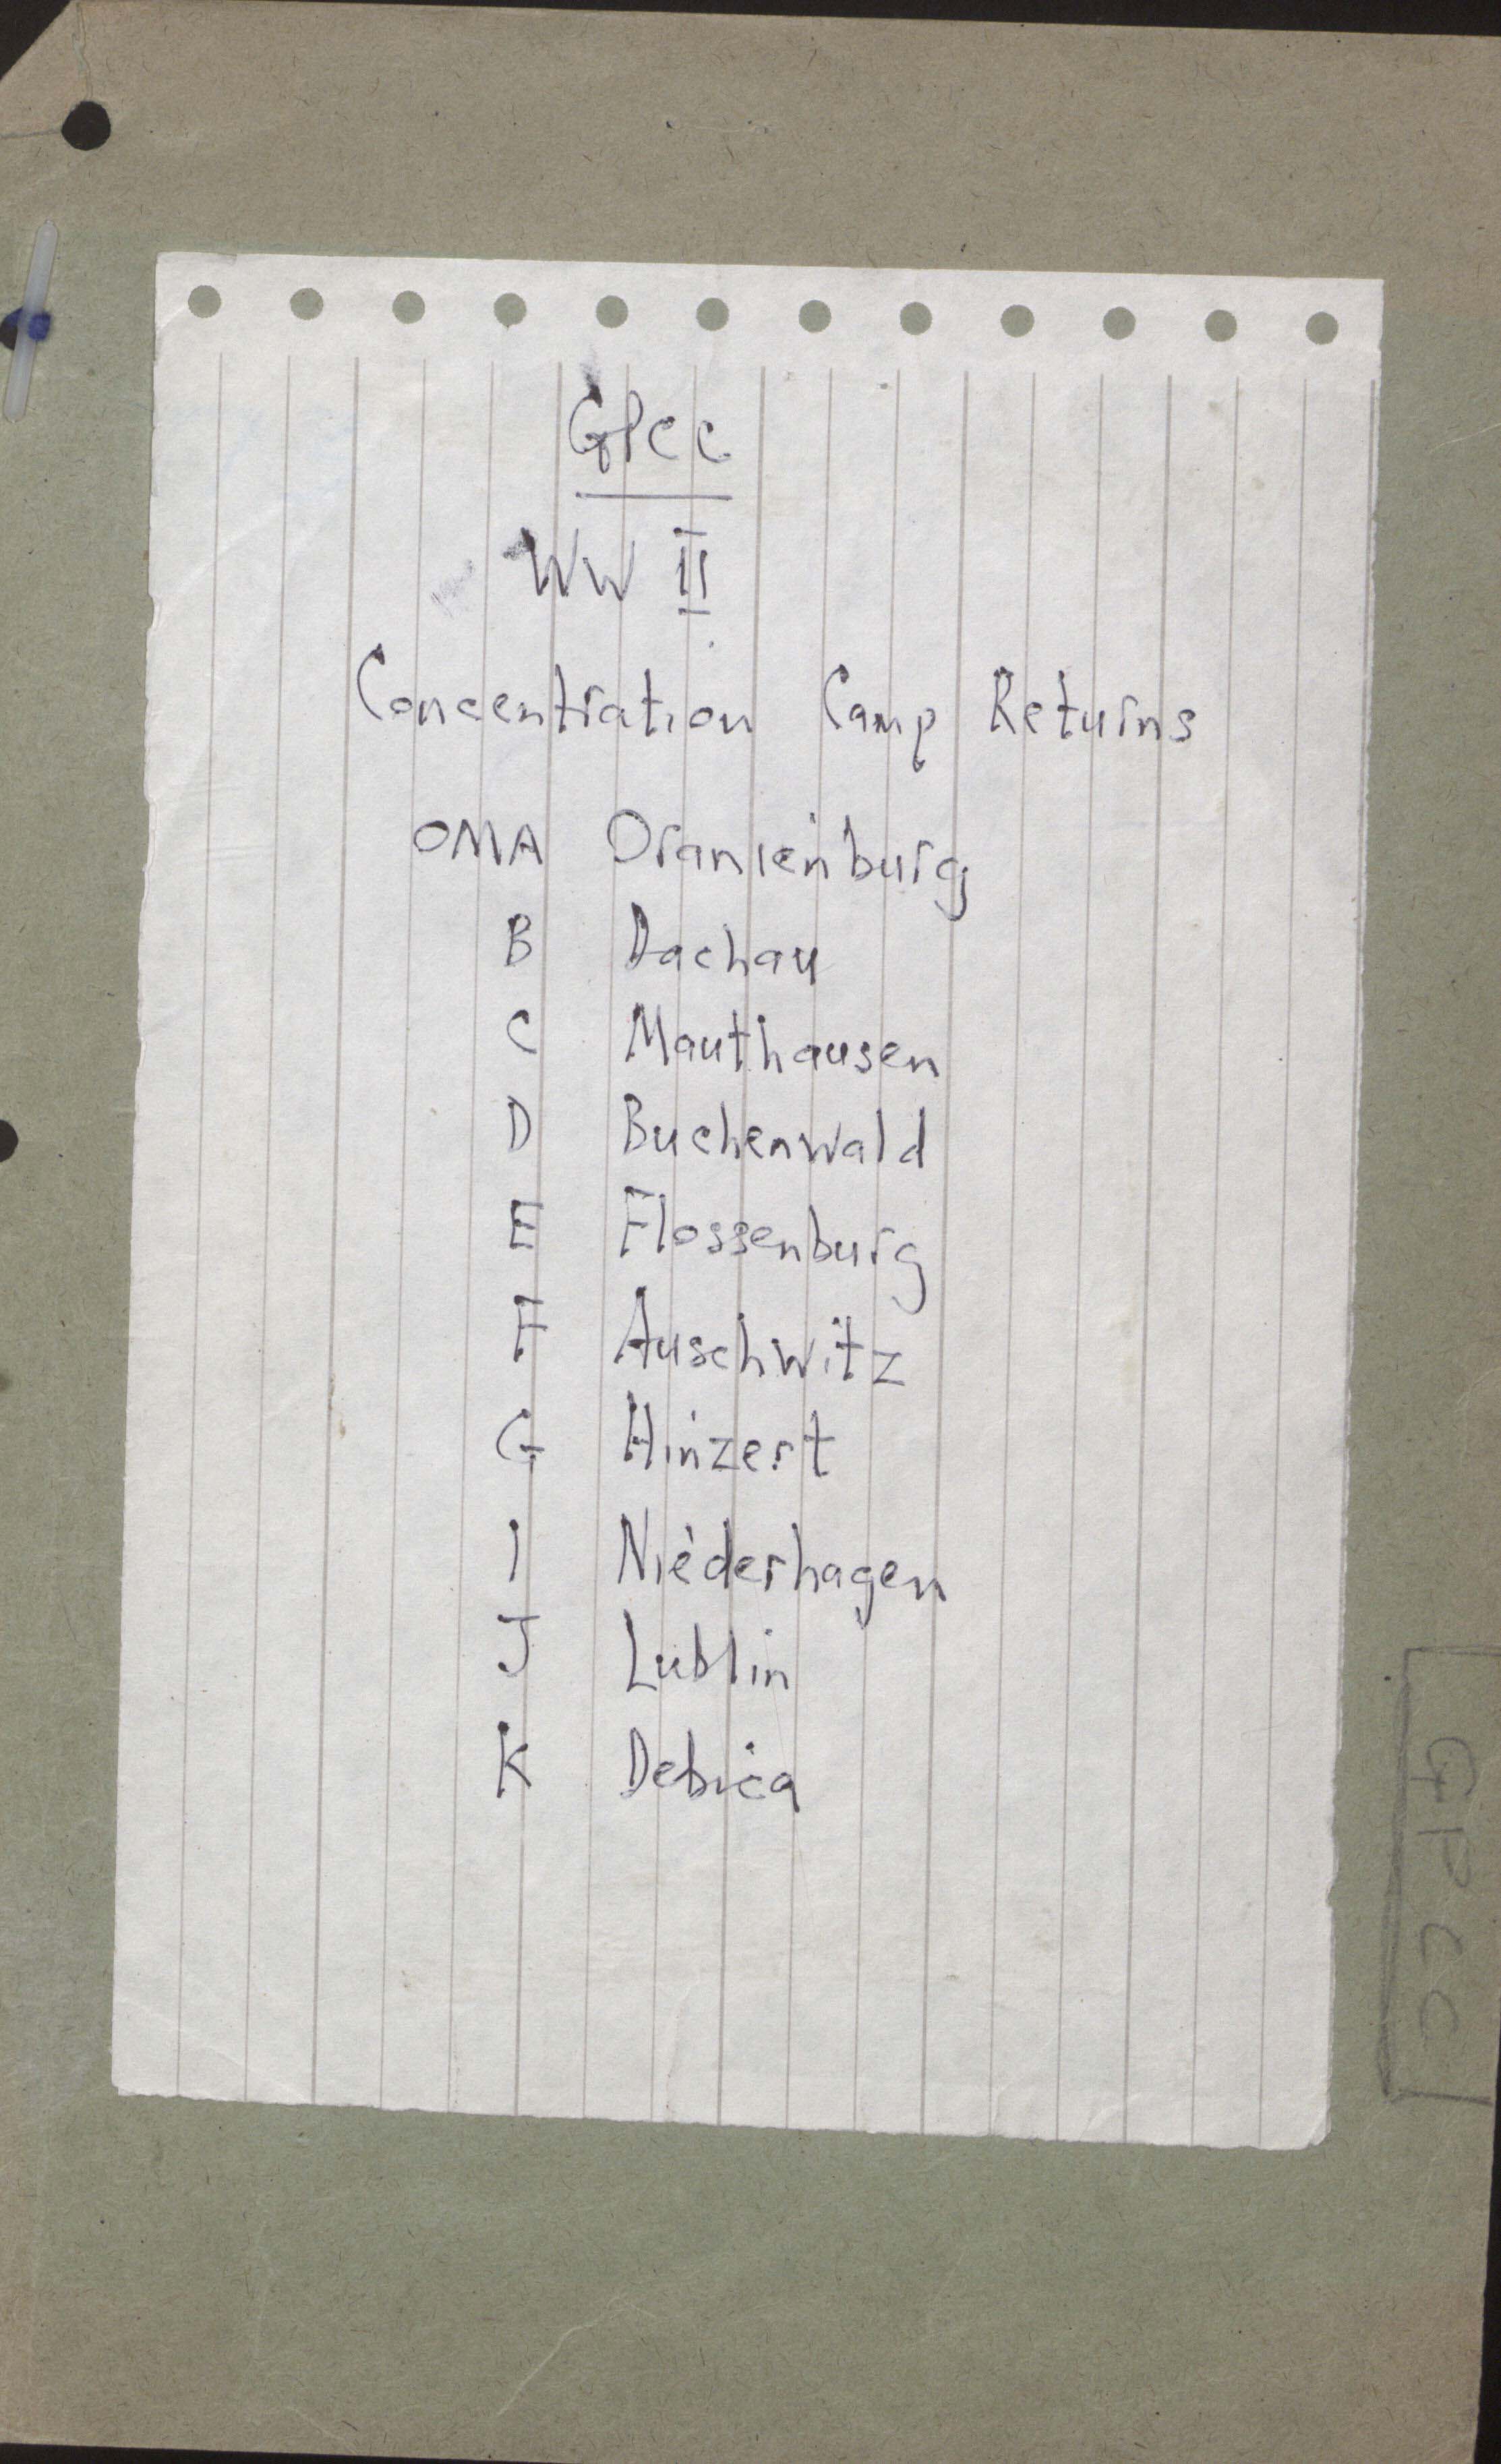 GPCC
WW II
Concentration Camp Returns
OMA Oranienburg
B Dachau
C Mauthausen
D Buchenwald
E Flossenburg
F Auschwitz
G Hinzert
I Niederhagen
J Lublin
K Debica
GPCC